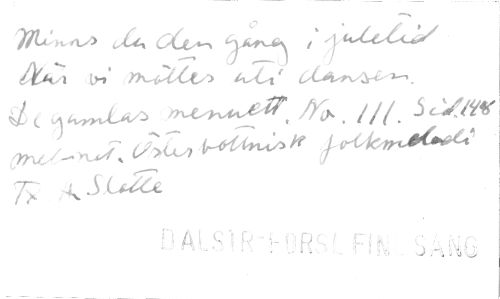 Minns du den gång i juletid
När vi möttes uti dansen.
De gamlas menuett. No. 111. Sid. 148
mel-not. Österbottnisk folkmelodi
Tx A Slotte
DALSTR-FORSL FINL SÅNG